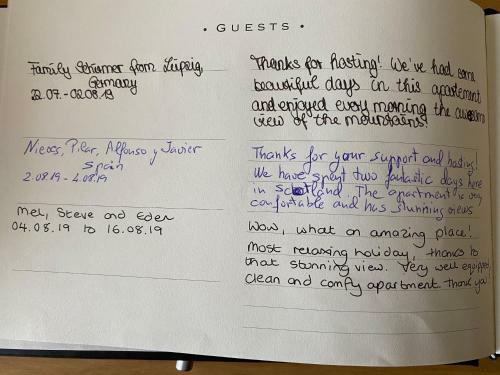 • GUESTS •
Family Schirmer from Leipzig,
Germany
22.07.-02.08.19
Thanks for hosting! We've had some
beautiful days in this apartement
and enjoyed every morning the awesom
view of the mountains!
Nieves, Pilar, Alfonso y Javier
Spain
2.08.19 - 4.08.19
Thanks for your support and hosting!
We have spent two fantastic days here
in Scotland. The apartment is very
comfortable and has stunning views
Mel, Steve and Eden
04.08.19 to 16.08.19
Wow, what an amazing place!
Most relaxing holiday, thanks to
that stunning view. Very well equipped,
clean and comfy apartment. Thank you